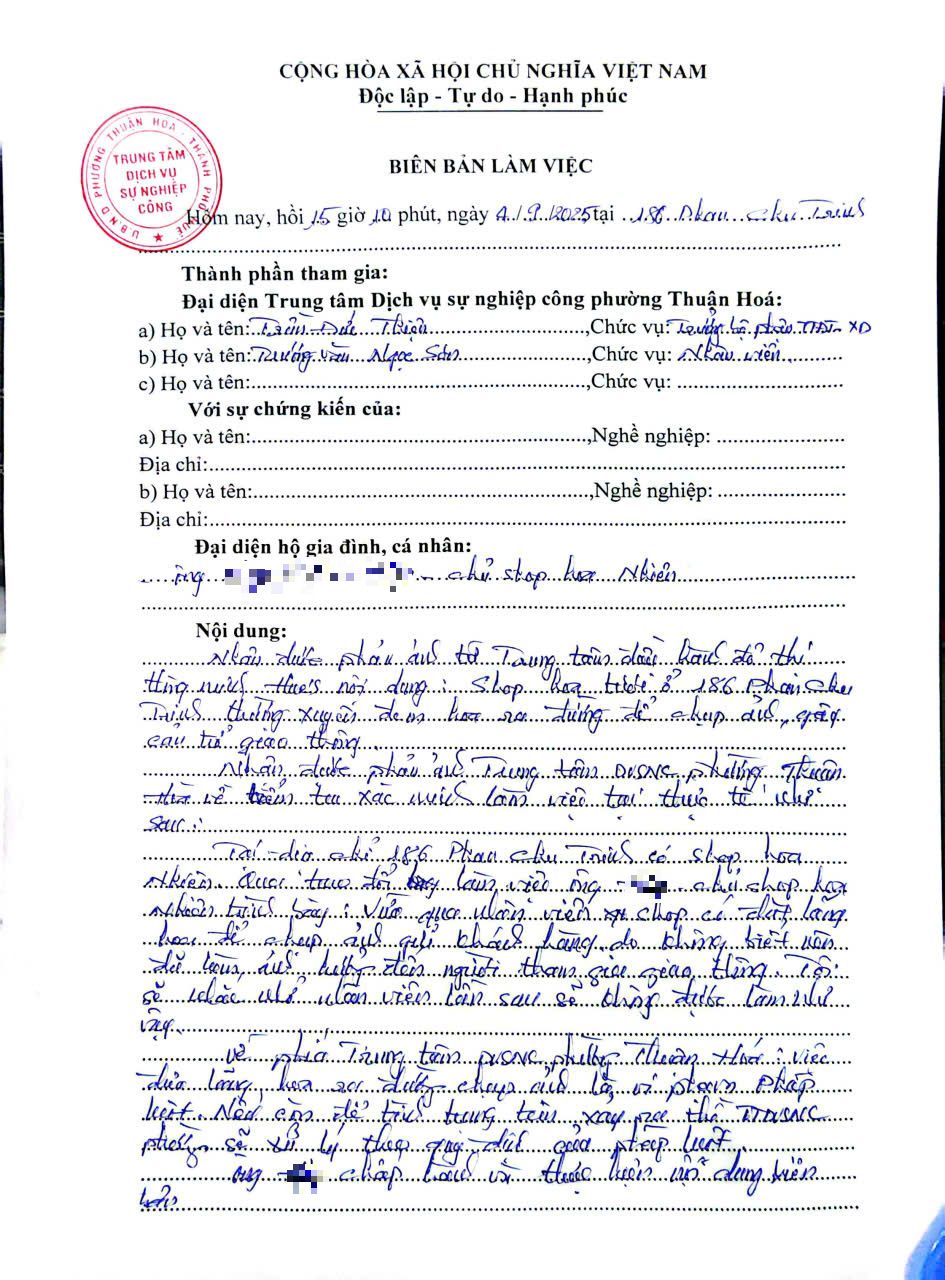 CỘNG HÒA XÃ HỘI CHỦ NGHĨA VIỆT NAM
Độc lập - Tự do - Hạnh phúc
U.B.N.D PHƯỜNG THUẬN HOA - THÀNH PHỐ HUẾ
TRUNG TÂM
DỊCH VỤ
SỰ NGHIỆP
CÔNG
BIÊN BẢN LÀM VIỆC
Hôm nay, hồi 15 giờ 10 phút, ngày 4/9/2025 tại 186 Phan Chu Trinh
Thành phần tham gia:
Đại diện Trung tâm Dịch vụ sự nghiệp công phường Thuận Hoá:
a) Họ và tên: Trần Đức Thiện, Chức vụ: Trưởng bộ phận XD
b) Họ và tên: Trương Văn Ngọc Sơn, Chức vụ: Nhân viên
c) Họ và tên:, Chức vụ:
Với sự chứng kiến của:
a) Họ và tên:, Nghề nghiệp:
Địa chỉ:
b) Họ và tên:, Nghề nghiệp:
Địa chỉ:
Đại diện hộ gia đình, cá nhân:
Ông - chủ shop hoa Nhiên
Nội dung:
Nhận được phản ánh từ Trung tâm điều hành đô thị
thông minh Huế nội dung: Shop hoa tươi ở 186 Phan Chu
Trinh thường xuyên đem hoa ra đường để chụp ảnh, gây
cản trở giao thông.
Nhận được phản ánh Trung tâm DVSNC phường Thuận
Hoá về kiểm tra xác minh làm việc tại thực tế như
sau:
Tại địa chỉ 186 Phan Chu Trinh có shop hoa
Nhiên. Qua trao đổi làm việc ông chủ shop hoa
Nhiên trình bày: Vừa qua nhân viên shop có đặt lẵng
hoa để chụp ảnh gửi khách hàng do không biết nên
đã làm ảnh hưởng đến người tham gia giao thông. Tôi
sẽ nhắc nhở nhân viên lần sau sẽ không được làm như
vậy.
Về phía Trung tâm DVSNC phường Thuận Hoá: việc
đưa lẵng hoa ra đường chụp ảnh là vi phạm pháp
luật. Nếu còn để tình trạng xảy ra thì TTDVSNC
phường sẽ xử lý theo quy định của pháp luật.
Ông chấp hành và thực hiện nội dung biên
bản